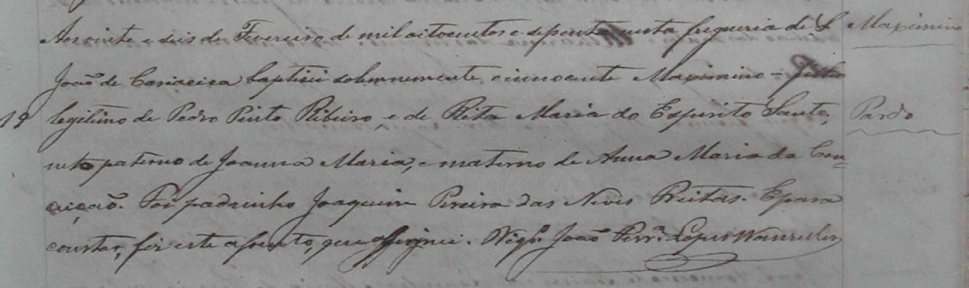 Aos vinte e seis de Fevereiro de mil oitocentos e setenta nesta freguezia de S. Maximino
João de Cariacica baptizei solemnemente o innocente Maximino - filho
19 legitimo de Pedro Pinto Ribeiro, e de Rita Maria do Espirito Santo, Pardo
neto paterno de Joanna Maria, e materno de Anna Maria da Con=
ceição. Foi padrinho Joaquim Pereira das Neves Freitas. E para
constar, fiz este assento, que assignei. Vigr.º João Ferr.ª Lopes Wanzeler